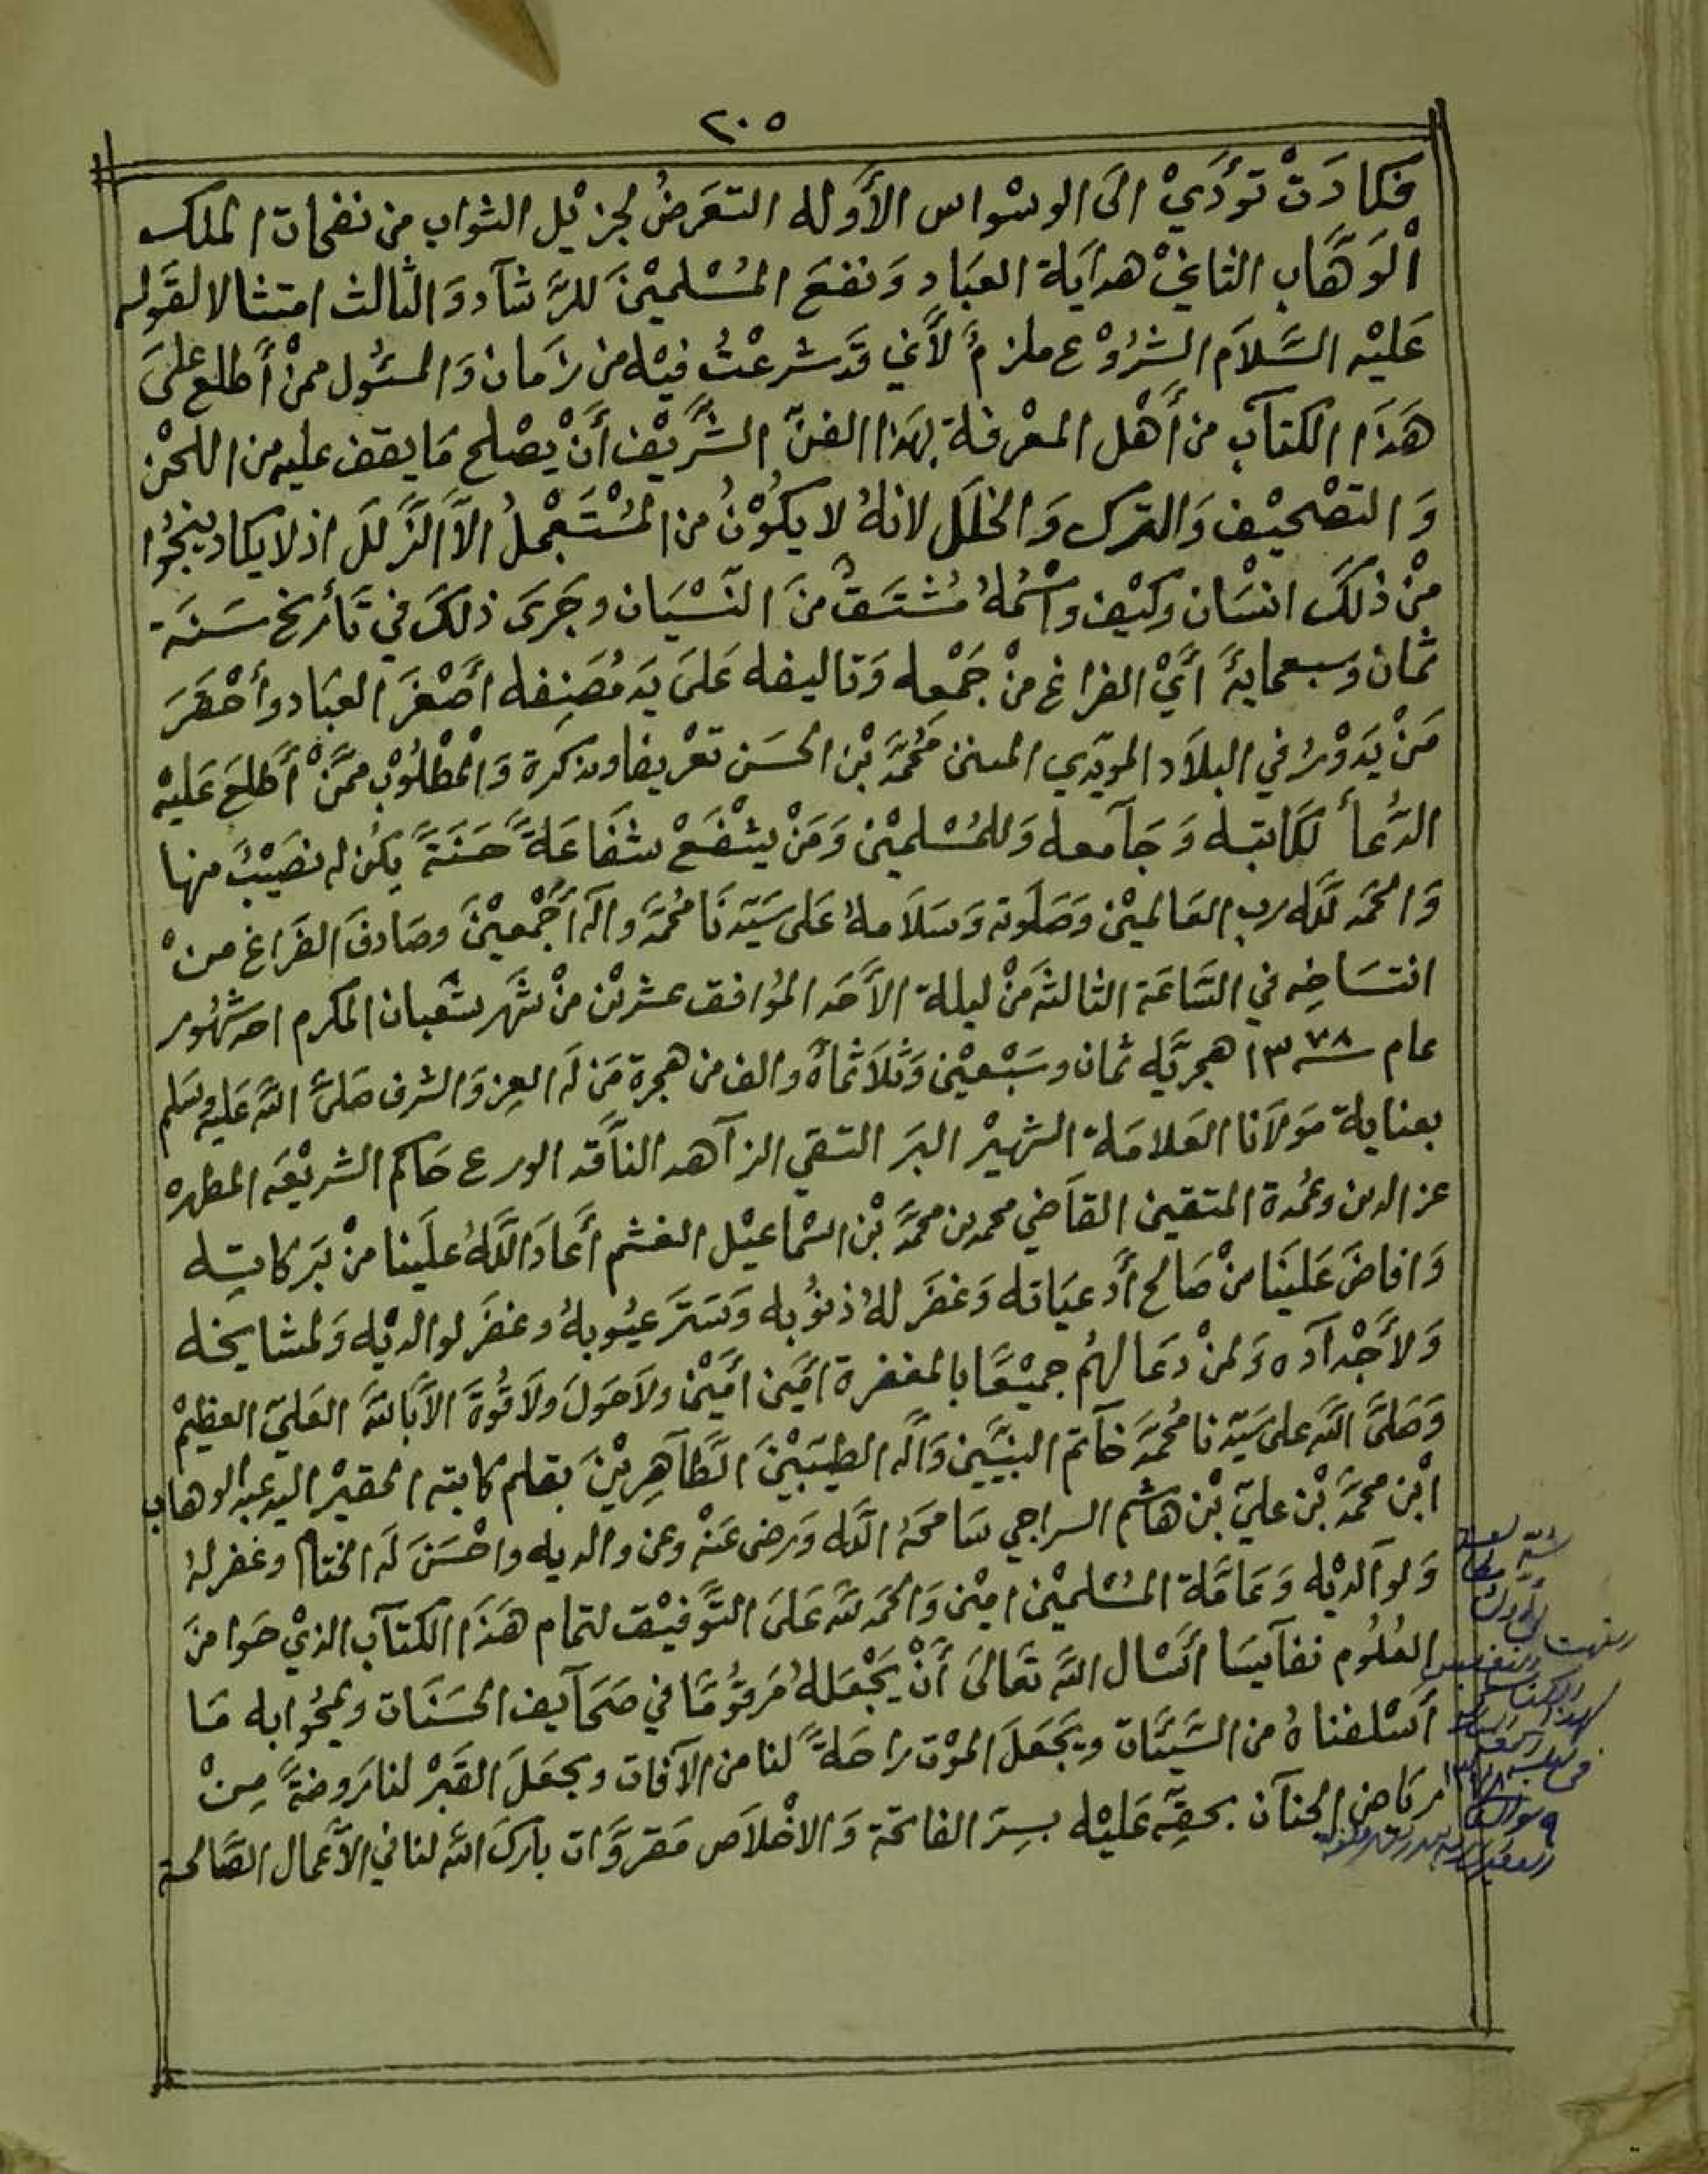 ٢٠٥
فكادَتْ تؤدَيْ الَى الوسْواس الأَوله التعَرضُ لجزيْل الثواب من نفحات الملك
الْوَهَّاب الثانيْ هدآيَة العبَاد وَنفعَ المُسْلميْنَ للرَّشآد وَالثالث امتثالا لقوله
عَليْه السَّلاَم الشرُوْع ملزمٌ لأَني قَد شرعْتُ فيْه من زمَان وَالمسئول ممنْ أَطلع علىَ
هَذَا الكتآب من أَهْل المعْرفة بهَذا الفنّ الشَّريْف أَنْ يصْلح مَا يقف عليه من اللحْن
وَالتصْحيْف وَالترك وَالخلَل لانهُ لا يكُوْنُ من المُسْتَعْجِلُ الاَّ الزَّلَل اذ لا يكاد ينجُوا
منْ ذلكَ انسَان وكيْف واسْمُهُ مُشْتَقٌ منَ النّسْيَان وجَرىَ ذلكَ في تَأريخ سَنَة
ثمان وسبعمايةَ أَيْ الفراغ منْ جَمْعه وَتاليفه عَلىَ يَد مُصَنِفه أَصْغَر العبَاد وأحْقَرَ
مَنْ يَدوْرُ في البلاَد المويّدي محُمَّدَ بْن الحسَن تعْريفا وتذكرة وَالمطْلُوْب ممَّنْ أَطلعَ عَليْه
الدُّعأ لكاتبه وَجَآمعه وَللمُسْلميْن وَمَنْ يشْفَعْ شفَاعَةً حَسَنَةً يكُن له نصَيْبٌ منها
وَالحَمْد للَّه رب العَالميْن وَصَلَوته وَسَلاَمهُ عَلى سَيّدنَا محُمَّد وآله أَجْمعيْنَ وصَادفَ الفَرَاغ منْ
انتسَاخِه في السَّاعَة الثالثَة منْ ليلة الأَحَد المُوافق عشريْن منْ شَهر شعْبان المكرم احد شهُور
عام ١٣٧٨ هجريَّه ثمان وسَبْعيْن وَثلاَثمأة والف من هجرة مَن لَه العِز وَالشرف صَلىَّ اللّه عَليه وسَلم
بعناية مَولاَنا العَلامَة الشهيْر البَر التقي الزآهد الناَّقد الورع حَاكم الشريْعَه المطهره
عز الدين وعُمدة المتقين القاَضي محمد بن محمَّد بْن اسْماعيْل الغشم أَعَادَ اللَّهُ علَينا منْ بَركاتِه
وَافاضَ عَلينَا منْ صَالح أَدعيَاته وَغفَر لهُ ذنوُبه وَسَتَرَ عيُوبهُ وغفَر لوالديْه وَلمشايخه
وَلأَجْدآده وَلمنْ دعَا لهُم جميْعًا بالمغفرة آمَين أمَيْن ولاَ حَولَ وَلاَ قُوةَ الاَّ باَللّه العَليّ العظيْم
وَصَلىَّ اللّه على سَيّدنا محُمَّد خآتم النبيَّين وَآلَه الطيبَيْنَ الطَّآهِريْنَ بقلم كاتبه الحقيْر السيد عبد الوهاب
ابْن محمَّد بْن عليّ بْن هاشم السراجي سَامحَهُ اللَّه وَرضى عَنْهُ وعن والديه واحْسَنَ لَه الختام وغفر لهُ
وَلوآلديْه وَعَامَّة المُسْلميْن اميْن وَالحَمد للّه عَلىَ التَّوفيْق لتمام هَذَا الكتآب الذيْ حَوا منَ
العُلُوم نفآيسَا أَسْال اللّه تَعَالىَ أَنْ يجَعْلهُ مَرقُوُمًا في صَحآيف الحسَنَات وَيمحُوا به مَا
أَسْلفناهُ من السَّيئَات ويَجَعلَ الموْت راحَةً لنا من الآفات ويجعَلَ القَبْر لنا رَوضَةً مِنْ
رياض الجنآن بحقِه عَليْه بسِرّ الفاتحَة وَالاخْلاَص مَقروَّات بآركَ الله لنا في الأَعمال الصَّالحة